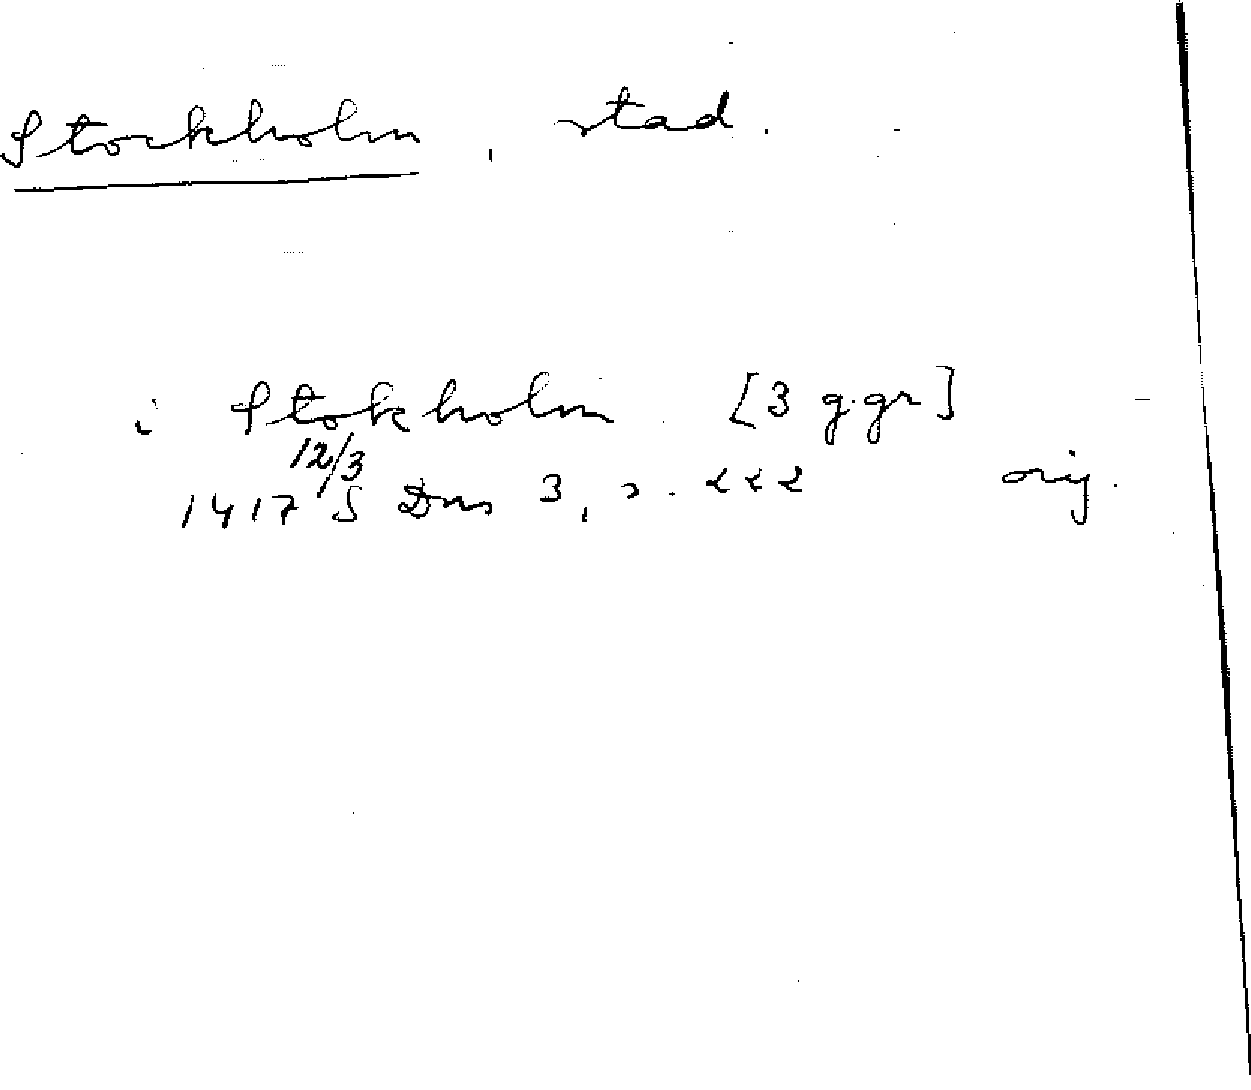 Stockholm, stad.
i Stokholm [3 g.gr]
12/3
1417 S Dns 3, s. 222 orig.